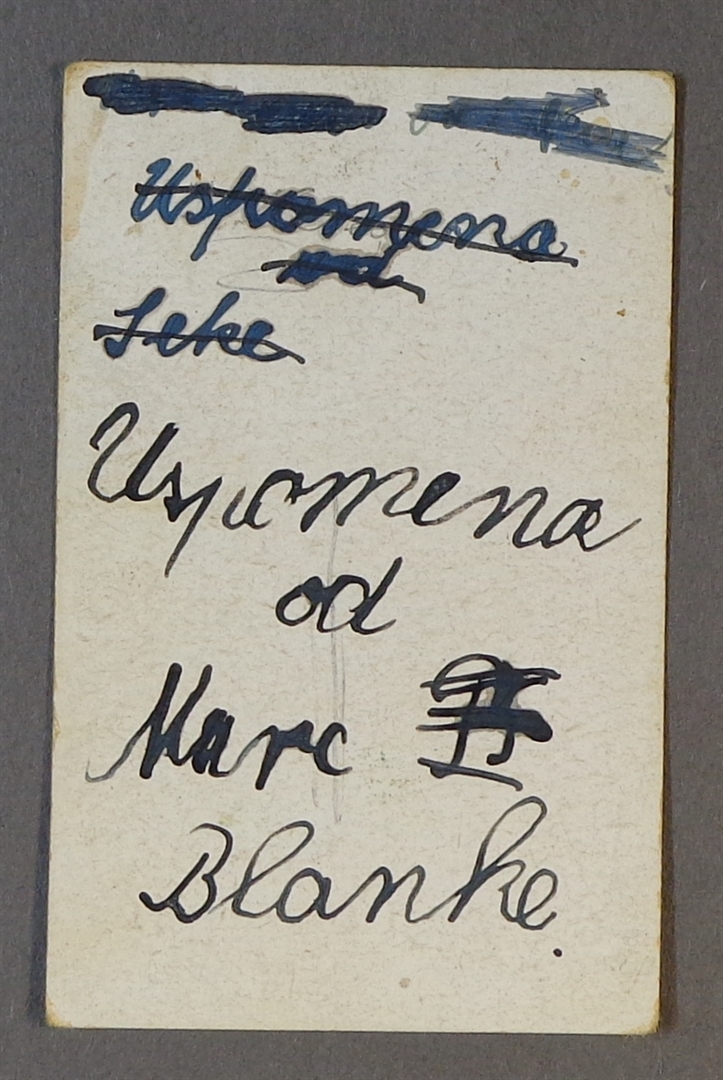 Uspomena
od
Seke
Uspomena
od
Mare
Blanke.